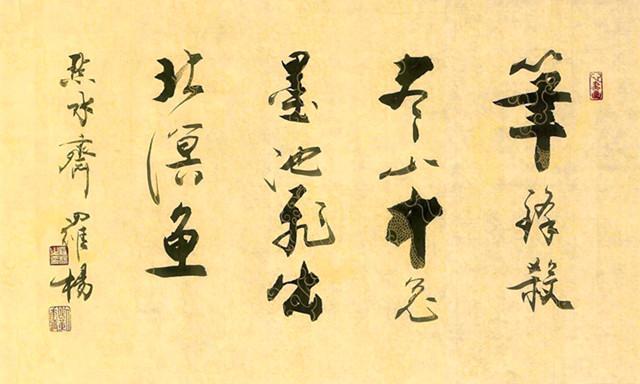 筆鋒殺
尽山中兔
墨池飛出
北溟魚
點水齋 羅楊